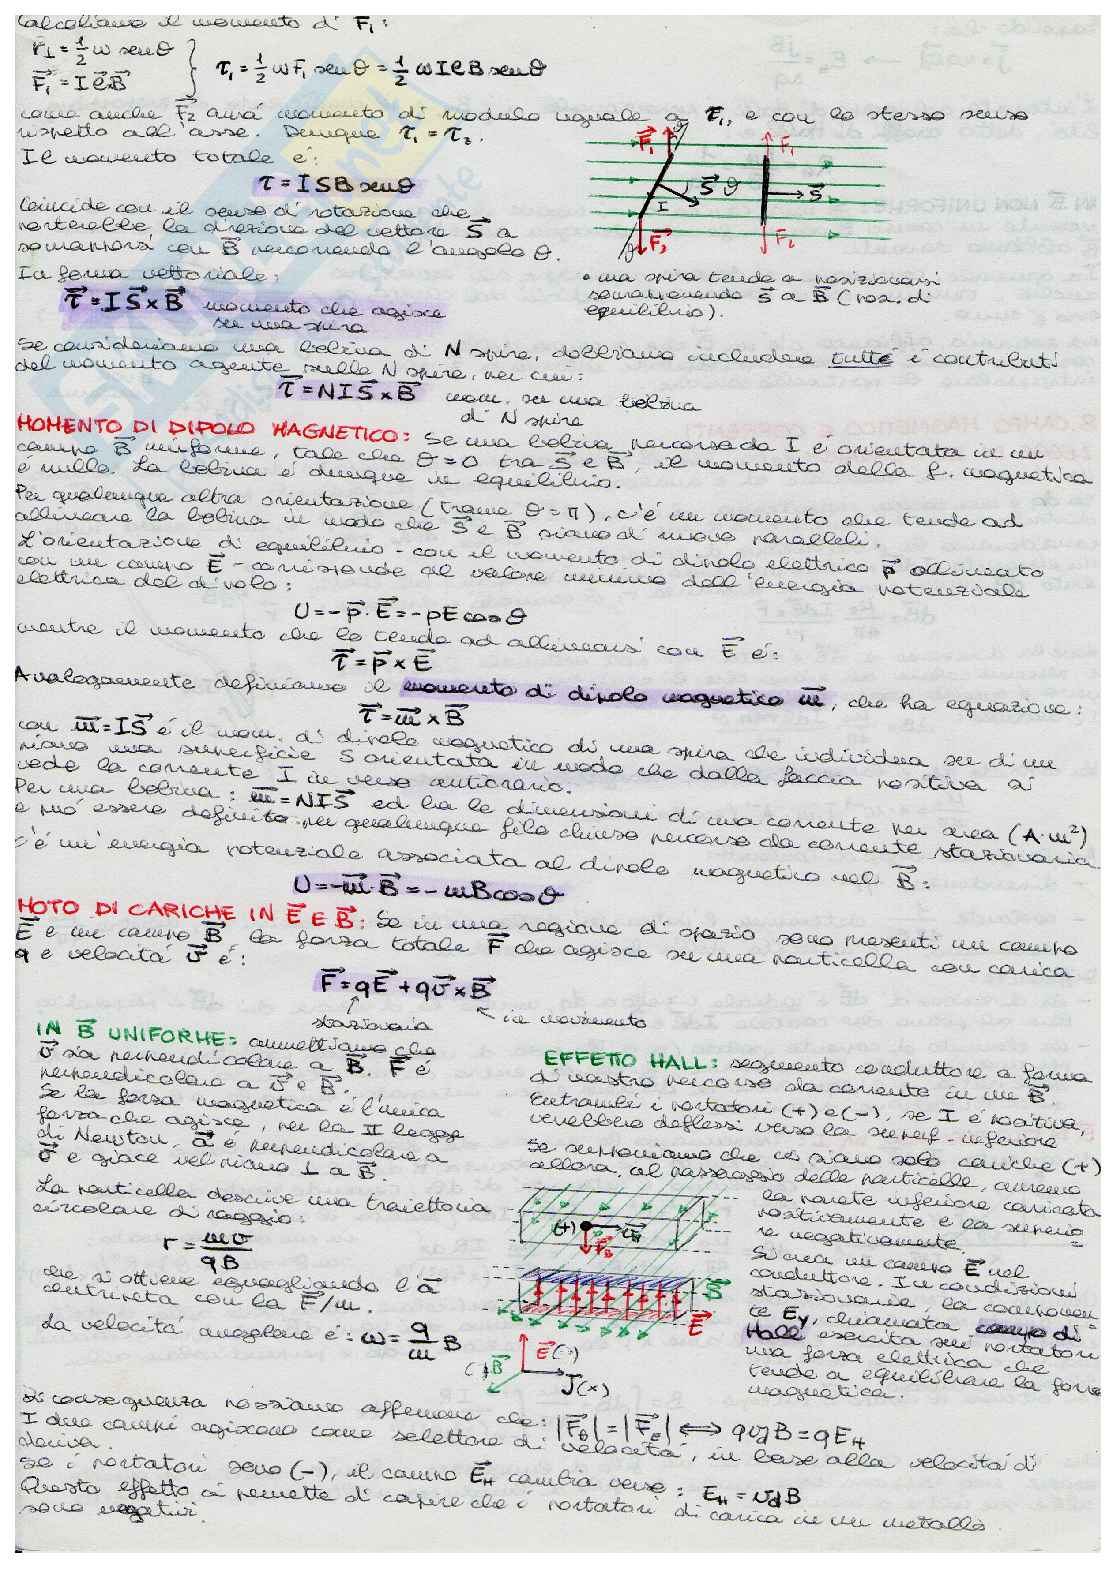 Calcoliamo il momento di F₁:
r⊥ = 1/2 w senθ
F⃗₁ = I ℓ⃗ B⃗
τ₁ = 1/2 w F₁ senθ = 1/2 w I ℓ B senθ
come anche F⃗₂ avrà momento di modulo uguale a τ₁, e con lo stesso senso
rispetto all'asse. Dunque τ₁ = τ₂.
Il momento totale è:
τ = I S B senθ
Coincide con il senso di rotazione che
porterebbe la direzione del vettore S⃗ a
sovrapporsi con B⃗ percorrendo l'angolo θ.
In forma vettoriale:
τ⃗ = I S⃗ × B⃗ momento che agisce
su una spira
F⃗₁ θ S⃗ θ I F⃗₂ θ
F₁ S⃗ F₂
• una spira tende a posizionarsi
sovrapponendo S⃗ a B⃗ (pos. di
equilibrio).
Se consideriamo una bobina di N spire, dobbiamo includere tutti i contributi
del momento agente sulle N spire, per cui:
τ⃗ = N I S⃗ × B⃗ mom. su una bobina
di N spire
MOMENTO DI DIPOLO MAGNETICO: Se una bobina percorsa da I è orientata in un
campo B⃗ uniforme, tale che θ = 0 tra S⃗ e B⃗, il momento della f. magnetica
è nullo. La bobina è dunque in equilibrio.
Per qualunque altra orientazione (tranne θ = π), c'è un momento che tende ad
allineare la bobina in modo che S⃗ e B⃗ siano di nuovo paralleli.
L'orientazione di equilibrio - con il momento di dipolo elettrico p⃗ allineato
con un campo E⃗ - corrisponde al valore minimo dell'energia potenziale
elettrica del dipolo:
U = -p⃗ · E⃗ = -pE cosθ
mentre il momento che lo tende ad allinearsi con E⃗ è:
τ⃗ = p⃗ × E⃗
Analogamente definiamo il momento di dipolo magnetico m⃗, che ha equazione:
τ⃗ = m⃗ × B⃗
con m⃗ = I S⃗ è il mom. di dipolo magnetico di una spira che individua su di un
piano una superficie S orientata in modo che dalla faccia positiva si
vede la corrente I in verso antiorario.
Per una bobina: m⃗ = N I S⃗ ed ha le dimensioni di una corrente per area (A·m²)
e può essere definito per qualunque filo chiuso percorso da corrente stazionaria
c'è un'energia potenziale associata al dipolo magnetico nel B⃗:
U = -m⃗ · B⃗ = -mB cosθ
MOTO DI CARICHE IN E⃗ E B⃗: Se in una regione di spazio sono presenti un campo
E⃗ e un campo B⃗, la forza totale F⃗ che agisce su una particella con carica
q e velocità v⃗ è:
F⃗ = qE⃗ + qv⃗ × B⃗
stazionaria in movimento
IN B⃗ UNIFORME: ammettiamo che
v⃗ sia perpendicolare a B⃗. F⃗ è
perpendicolare a v⃗ e B⃗.
Se la forza magnetica è l'unica
forza che agisce, per la II legge
di Newton, a⃗ è perpendicolare a
v⃗ e giace nel piano ⊥ a B⃗.
La particella descrive una traiettoria
circolare di raggio:
r = mv / qB
che si ottiene eguagliando l'a⃗
centripeta con la F⃗/m.
La velocità angolare è: ω = q/m B
EFFETTO HALL: segmento conduttore a forma
di nastro percorso da corrente in un B⃗.
Entrambi i portatori (+) e (-), se I è positiva,
verrebbero deflessi verso la superf. inferiore
Se supponiamo che ci siano solo cariche (+)
allora, al passaggio delle particelle, avremo
la parete inferiore caricata
positivamente e la superio
re negativamente.
Si crea un campo E⃗ nel
conduttore. In condizioni
stazionarie, la componen
te Ey, chiamata campo di
Hall esercita sui portatori
una forza elettrica che
tende a equilibrare la forza
magnetica.
(+) F⃗
B⃗
E⃗
E⃗
B⃗ J(x)
Di conseguenza possiamo affermare che: |F⃗B| = |F⃗E| ⟺ qvdB = qEH
I due campi agiscono come selettore di velocità, in base alla velocità di
deriva.
Se i portatori sono (-), il campo E⃗H cambia verso: EH = vdB
Questo effetto ci permette di capire che i portatori di carica in un metallo
sono negativi.